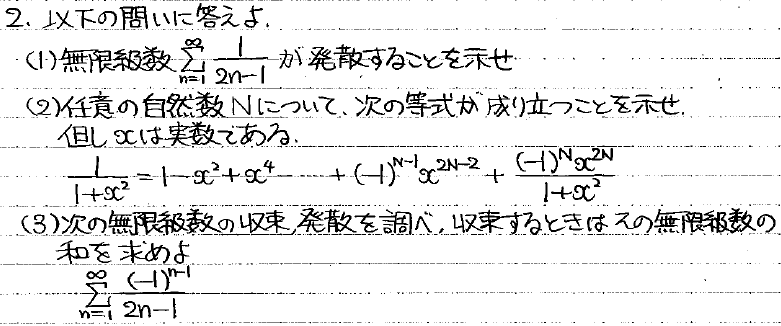 2. 以下の問いに答えよ.
(1)無限級数 \sum_{n=1}^{∞} \frac{1}{2n-1} が発散することを示せ
(2)任意の自然数Nについて、次の等式が成り立つことを示せ.
但しxは実数である.
\frac{1}{1+x^2} = 1-x^2+x^4-……+(-1)^{N-1}x^{2N-2}+\frac{(-1)^N x^{2N}}{1+x^2}
(3)次の無限級数の収束,発散を調べ,収束するときはその無限級数の
和を求めよ
\sum_{n=1}^{∞} \frac{(-1)^{n-1}}{2n-1}